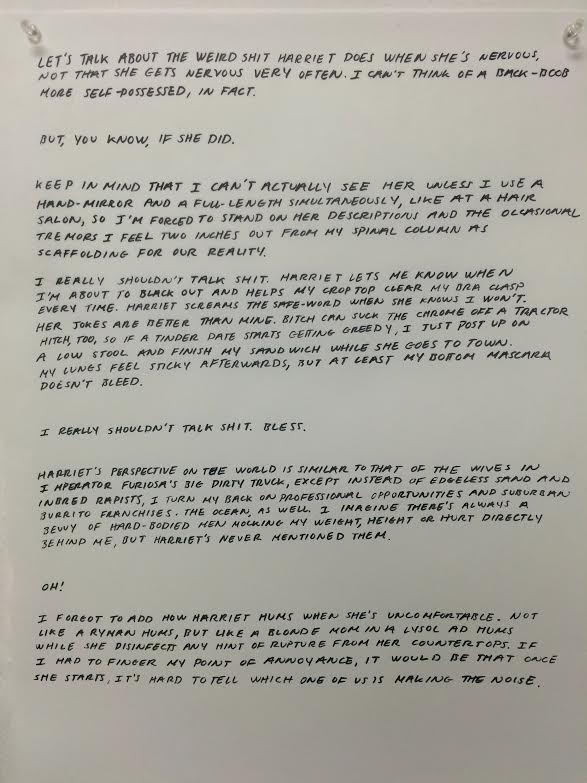 LET'S TALK ABOUT THE WEIRD SHIT HARRIET DOES WHEN SHE'S NERVOUS,
NOT THAT SHE GETS NERVOUS VERY OFTEN. I CAN'T THINK OF A BACK-BOOB
MORE SELF-POSSESSED, IN FACT.
BUT, YOU KNOW, IF SHE DID.
KEEP IN MIND THAT I CAN'T ACTUALLY SEE HER UNLESS I USE A
HAND-MIRROR AND A FULL-LENGTH SIMULTANEOUSLY, LIKE AT A HAIR
SALON, SO I'M FORCED TO STAND ON HER DESCRIPTIONS AND THE OCCASIONAL
TREMORS I FEEL TWO INCHES OUT FROM MY SPINAL COLUMN AS
SCAFFOLDING FOR OUR REALITY.
I REALLY SHOULDN'T TALK SHIT. HARRIET LETS ME KNOW WHEN
I'M ABOUT TO BLACK OUT AND HELPS MY CROPTOP CLEAR MY BRA CLASP
EVERY TIME. HARRIET SCREAMS THE SAFE-WORD WHEN SHE KNOWS I WON'T.
HER JOKES ARE BETTER THAN MINE. BITCH CAN SUCK THE CHROME OFF A TRACTOR
HITCH, TOO, SO IF A TINDER DATE STARTS GETTING GREEDY, I JUST POST UP ON
A LOW STOOL AND FINISH MY SANDWICH WHILE SHE GOES TO TOWN.
MY LUNGS FEEL STICKY AFTERWARDS, BUT AT LEAST MY BOTTOM MASCARA
DOESN'T BLEED.
I REALLY SHOULDN'T TALK SHIT. BLESS.
HARRIET'S PERSPECTIVE ON THE WORLD IS SIMILAR TO THAT OF THE WIVES IN
IMPERATOR FURIOSA'S BIG DIRTY TRUCK, EXCEPT INSTEAD OF EDGELESS SAND AND
INBRED RAPISTS, I TURN MY BACK ON PROFESSIONAL OPPORTUNITIES AND SUBURBAN
BURRITO FRANCHISES. THE OCEAN, AS WELL. I IMAGINE THERE'S ALWAYS A
BEVVY OF HARD-BODIED MEN MOCKING MY WEIGHT, HEIGHT OR HURT DIRECTLY
BEHIND ME, BUT HARRIET'S NEVER MENTIONED THEM.
OH!
I FORGOT TO ADD HOW HARRIET HUMS WHEN SHE'S UNCOMFORTABLE. NOT
LIKE A RYMAN HUMS, BUT LIKE A BLONDE MOM IN A LYSOL AD HUMS
WHILE SHE DISINFECTS ANY HINT OF RUPTURE FROM HER COUNTERTOPS. IF
I HAD TO FINGER MY POINT OF ANNOYANCE, IT WOULD BE THAT ONCE
SHE STARTS, IT'S HARD TO TELL WHICH ONE OF US IS MAKING THE NOISE.